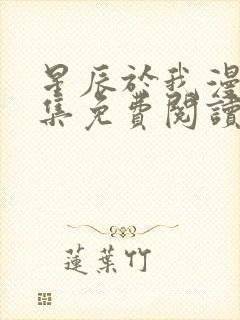 星辰於我漫
集免費閱讀
蓮葉竹